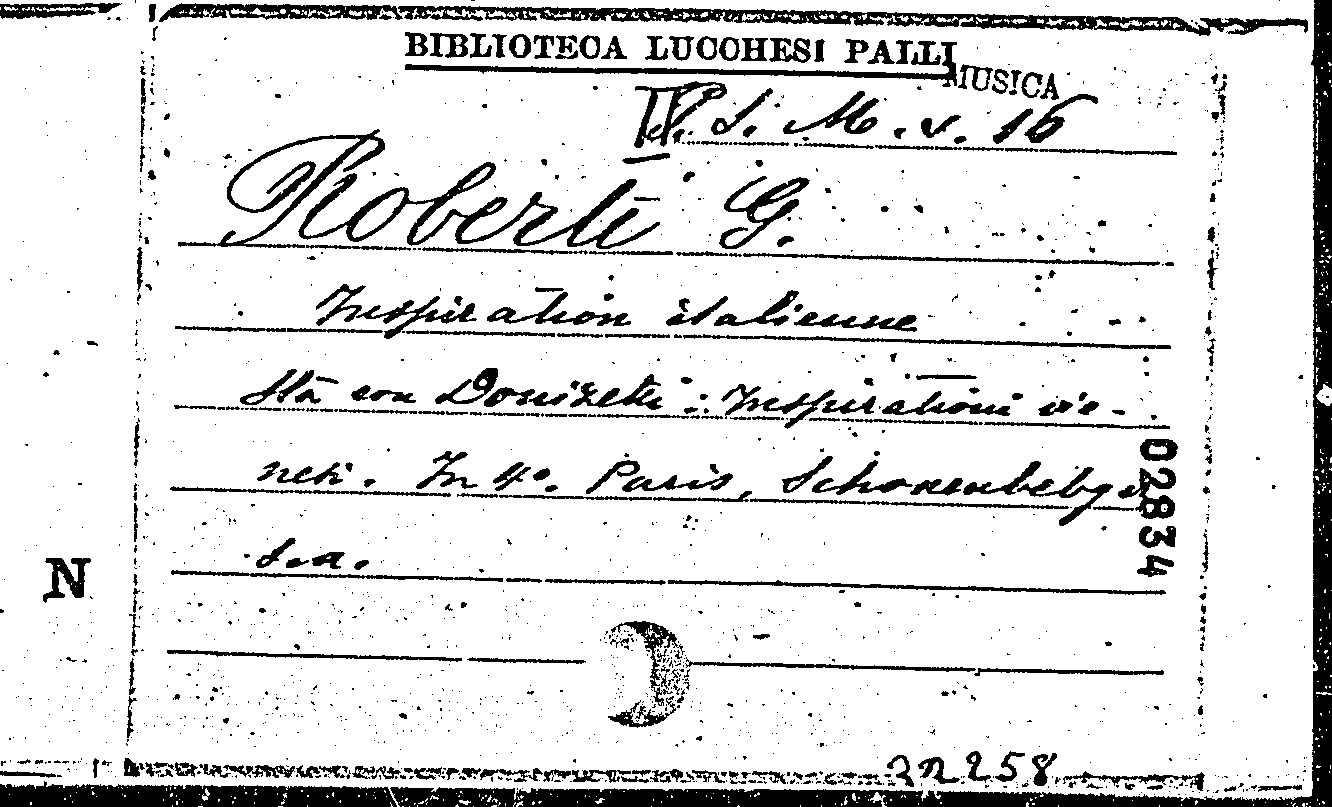 BIBLIOTECA LUCCHESI PALLI
MUSICA
S. M. v. 16
Roberti G.
Inspiration italienne
Sta con Donizetti: Inspirationi vie-
neti. In 4°. Paris, Schonenbebger
s.a.
02834
N
22258